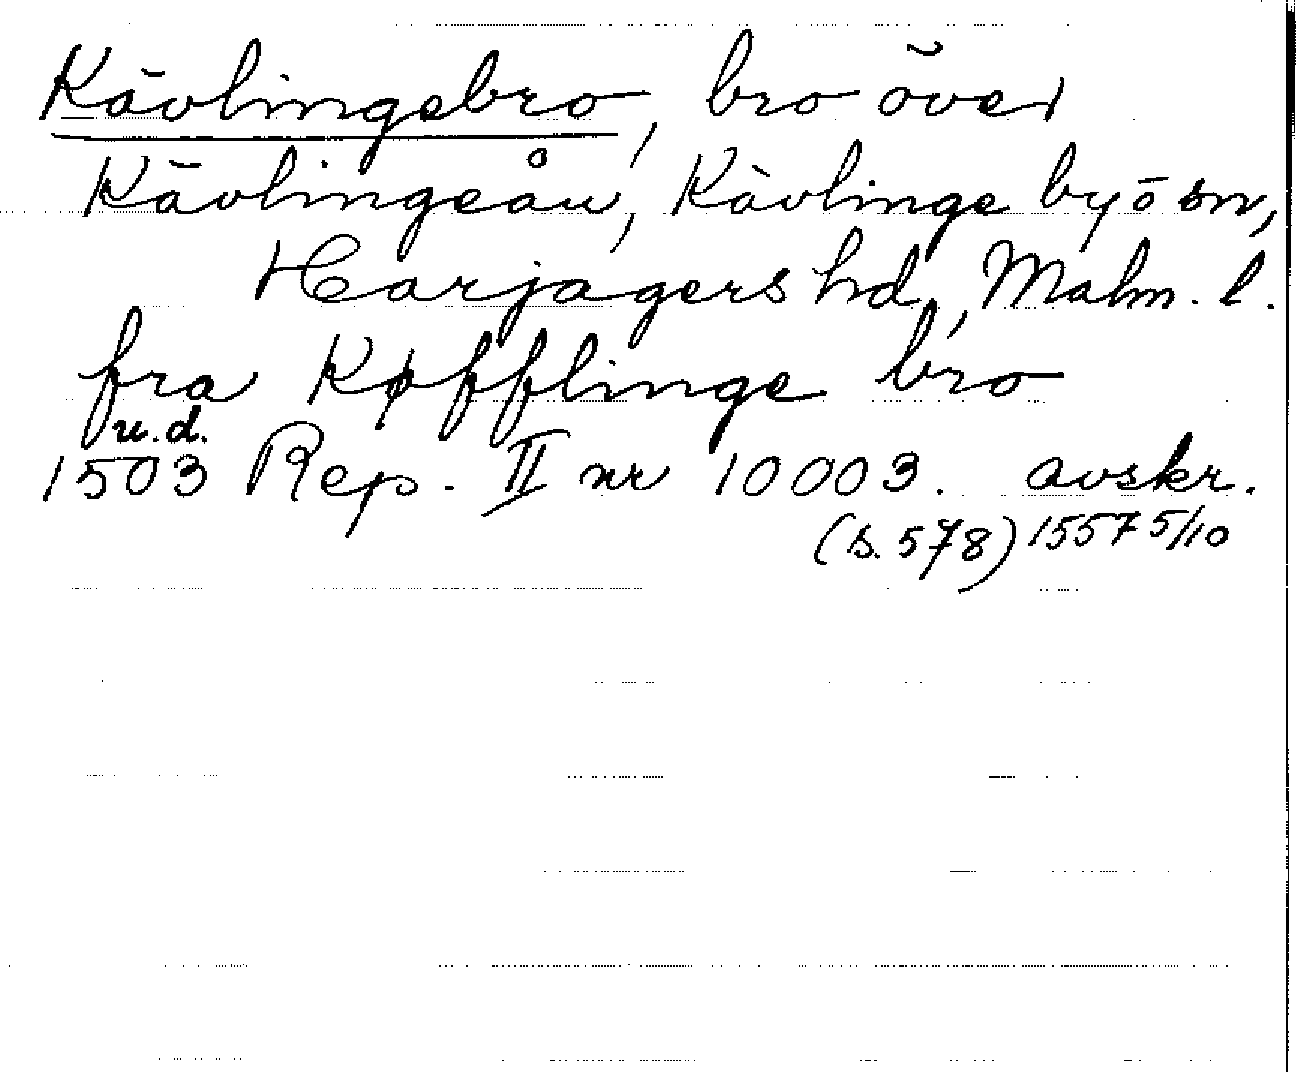 Kävlingebro, bro över
Kävlingeån, Kävlinge by ō sn,
Harjagers hd, Malm. l.
fra Køfflinge bro
u.d.
1503 Rep. II nr 10003. avskr.
(s. 578) 1557 5/10